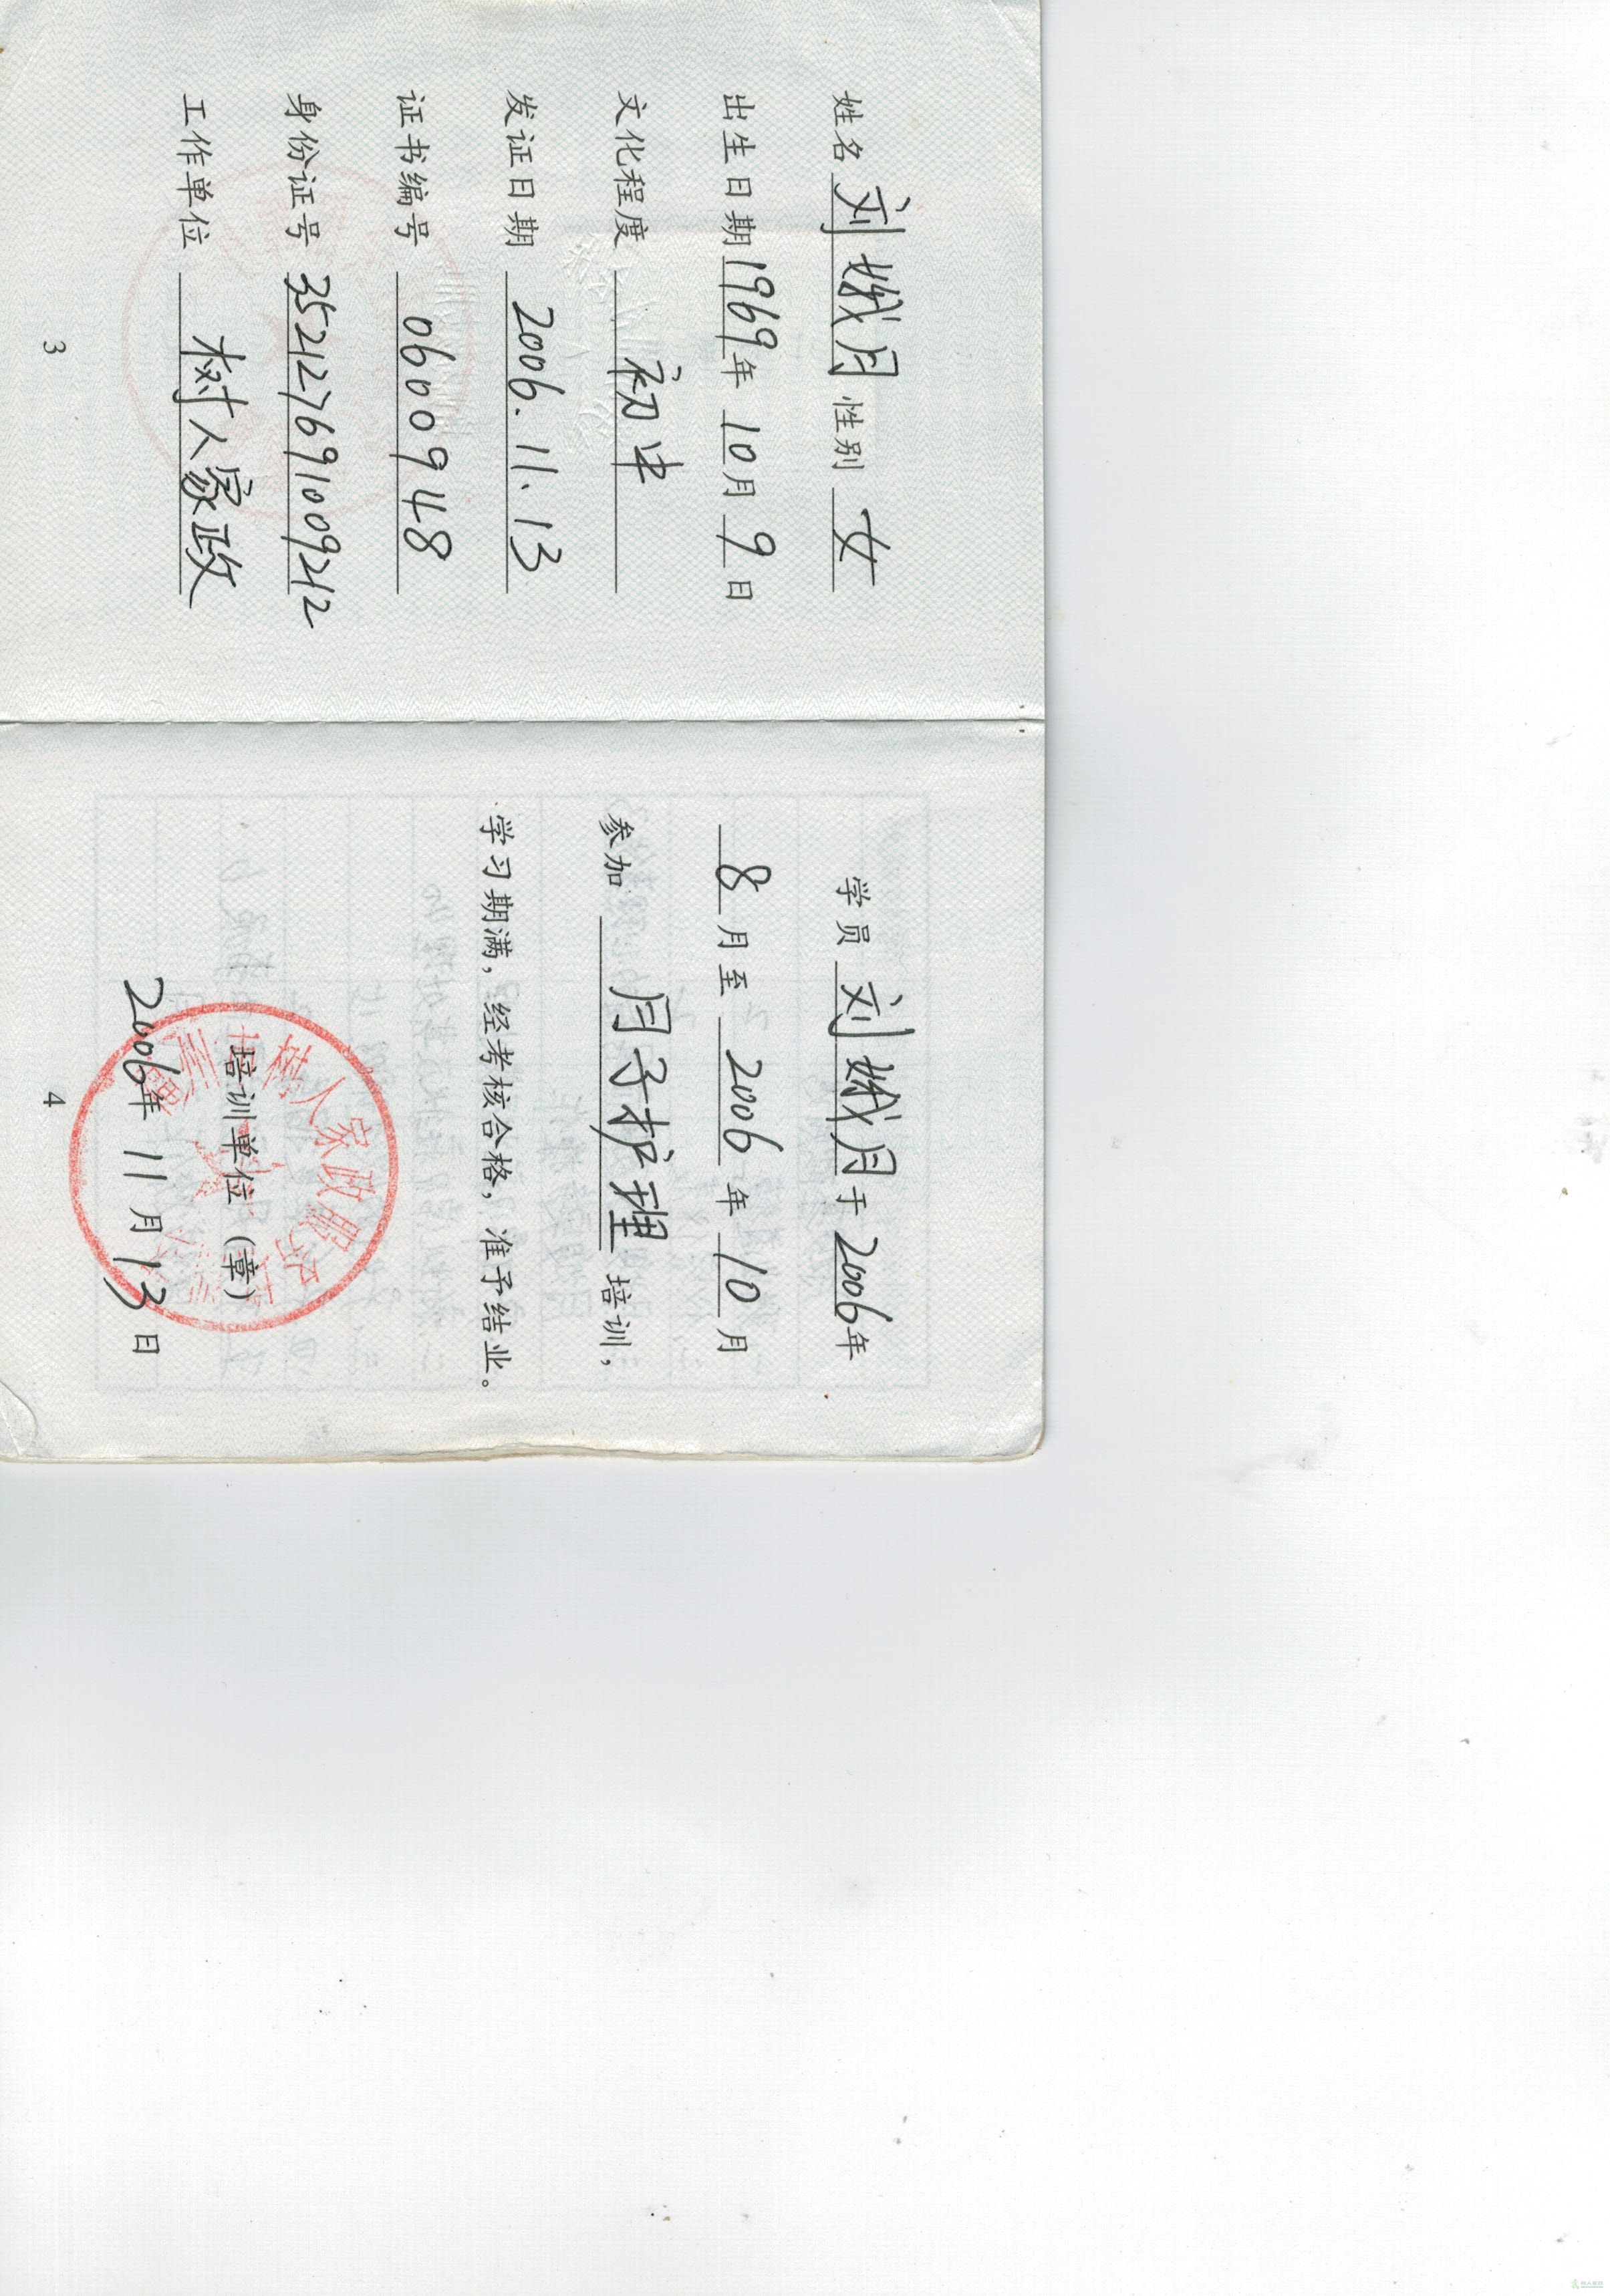 姓名 刘娥月 性别 女
出生日期 1969年 10月 9日
文化程度 初中
发证日期 2006.11.13
证书编号 0600948
身份证号 352127691009212
工作单位 树人家政
3
学员 刘娥月 于 2006年
8月至 2006年 10月
参加 月子护理 培训,
学习期满, 经考核合格, 准予结业。
树人家政服务
培训单位 (章)
2006年 11月 13日
4